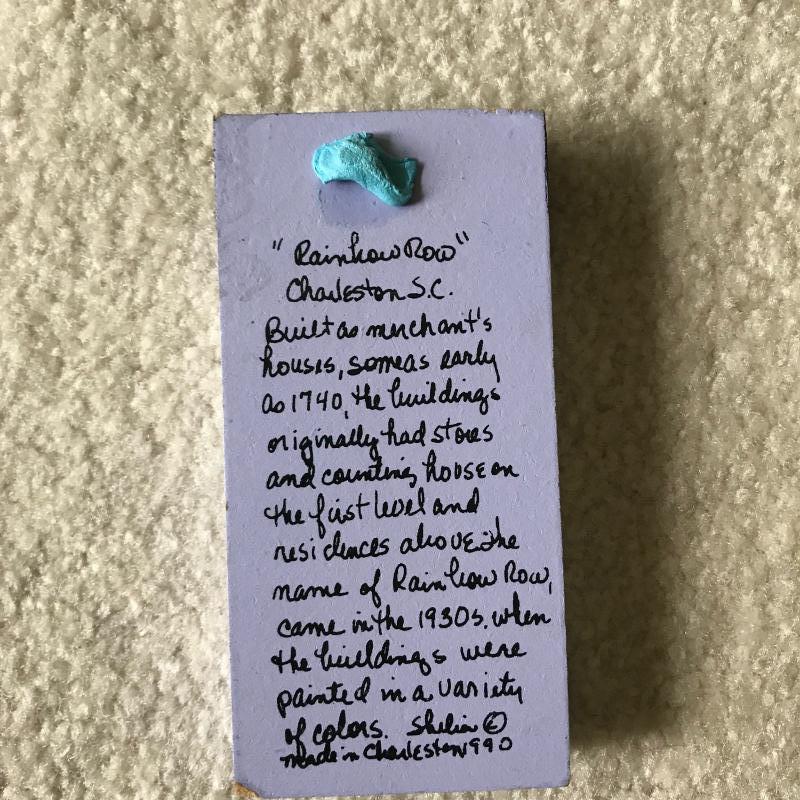 "Rainbow Row"
Charleston S.C.
Built as merchant's
houses, some as early
as 1740, the buildings
originally had stores
and counting house on
the first level and
residences above. The
name of Rainbow Row,
came in the 1930s. when
the buildings were
painted in a variety
of colors. Shelia ©
made in Charleston 1990